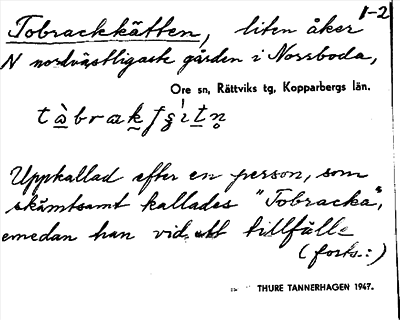 1-2
Tobrackkätten, liten åker
N nordvästligaste gården i Norsboda,
Ore sn, Rättviks tg, Kopparbergs län.
Uppkallad efter en person, som
skämtsamt kallades "Tobracka",
emedan han vid ett tillfälle
(forts.:)
THURE TANNERHAGEN 1947.